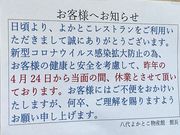 お客様へお知らせ
日頃より、よかとこレストランをご利用
いただきまして誠にありがとうございます。
新型コロナウイルス感染拡大防止の為、
お客様の健康と安全を考慮して、昨年の
4月24日から当面の間、休業とさせて頂い
ております。お客様にはご不便をおかけい
たしますが、何卒、ご理解を賜りますよう
お願い申し上げます。
八代よかとこ物産館 館長